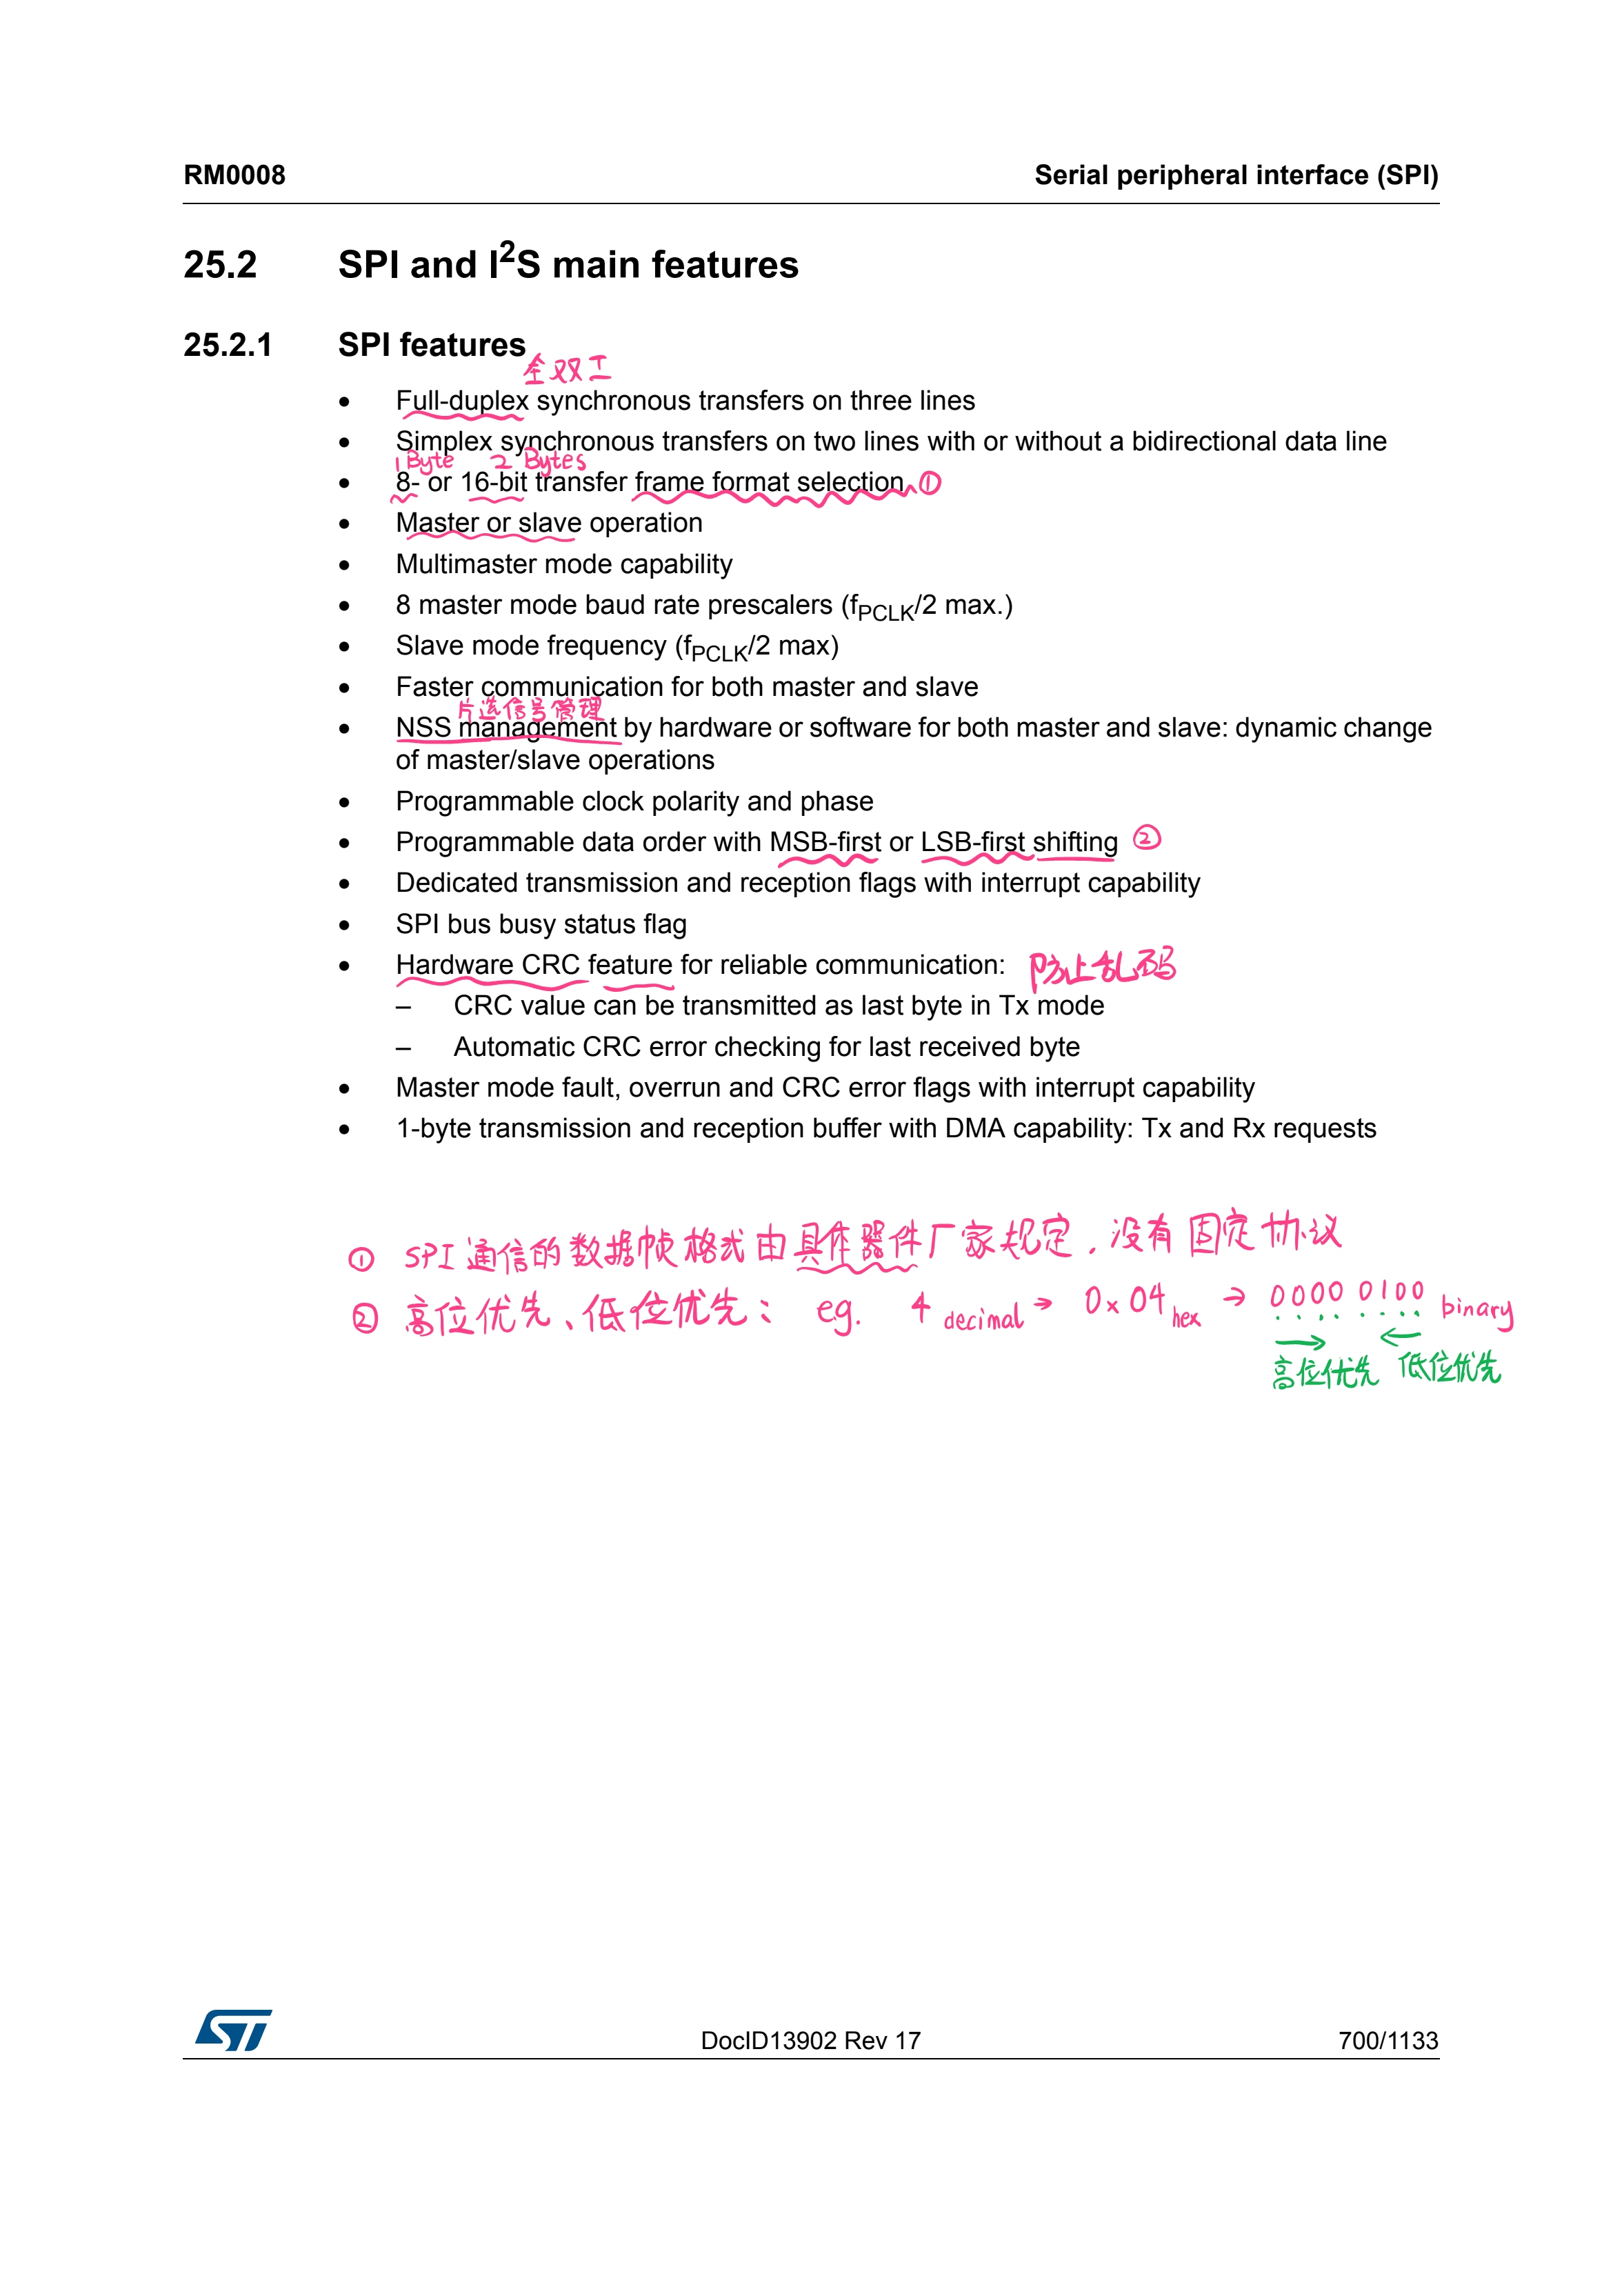 RM0008 Serial peripheral interface (SPI)
25.2 SPI and I²S main features
25.2.1 SPI features
全双工
• Full-duplex synchronous transfers on three lines
• Simplex synchronous transfers on two lines with or without a bidirectional data line
1 Byte 2 Bytes
• 8- or 16-bit transfer frame format selection ①
• Master or slave operation
• Multimaster mode capability
• 8 master mode baud rate prescalers (fPCLK/2 max.)
• Slave mode frequency (fPCLK/2 max)
• Faster communication for both master and slave
片选信号管理
• NSS management by hardware or software for both master and slave: dynamic change
of master/slave operations
• Programmable clock polarity and phase
• Programmable data order with MSB-first or LSB-first shifting ②
• Dedicated transmission and reception flags with interrupt capability
• SPI bus busy status flag
• Hardware CRC feature for reliable communication: 防止乱码
– CRC value can be transmitted as last byte in Tx mode
– Automatic CRC error checking for last received byte
• Master mode fault, overrun and CRC error flags with interrupt capability
• 1-byte transmission and reception buffer with DMA capability: Tx and Rx requests
① SPI通信的数据帧格式由具体器件厂家规定，没有固定协议
② 高位优先、低位优先： eg. 4 decimal → 0x04 hex → 0000 0100 binary
→ ←
高位优先 低位优先
ST DocID13902 Rev 17 700/1133